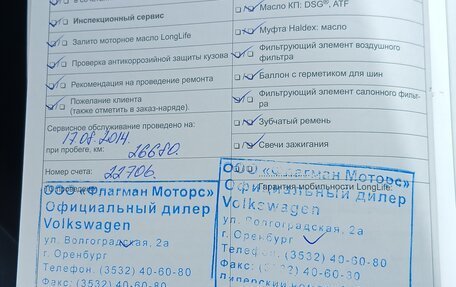 Масло КП: DSG®, ATF
Инспекционный сервис
Муфта Haldex: масло
Залито моторное масло LongLife
Фильтрующий элемент воздушного
фильтра
Проверка антикоррозийной защиты кузова
Баллон с герметиком для шин
Рекомендация на проведение ремонта
Фильтрующий элемент салонного фильт-
ра
Пожелание клиента
(также отметить в заказ-наряде).
Зубчатый ремень
Сервисное обслуживание проведено на:
17.08.2014.
Свечи зажигания
при пробеге, км: 26670.
Номер счета: 22706.
Гарантия мобильности LongLife
ООО «Флагман Моторс»
Официальный дилер
Volkswagen
ул. Волгоградская, 2а
г. Оренбург
Телефон. (3532) 40-60-80
Факс: (3532) 40-60-30
ООО «Флагман Моторс»
Официальный дилер
Volkswagen
ул. Волгоградская, 2а
г. Оренбург
Телефон. (3532) 40-60-80
Факс: (3532) 40-60-30
Дилерский номер